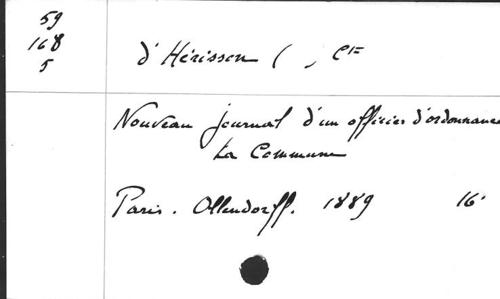 59
168
5
d'Hérisson ( , Cte
Nouveau journal d'un officier d'ordonnance
La Commune
Paris. Ollendorff. 1889 16°